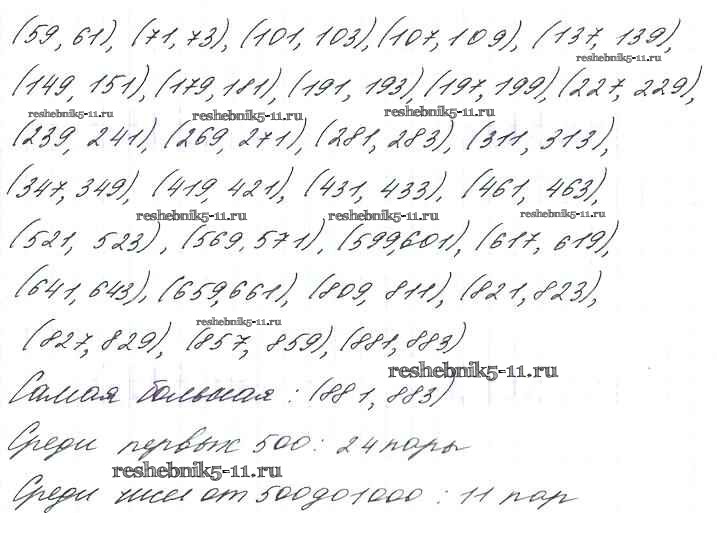 (59, 61), (71, 73), (101, 103), (107, 109), (137, 139),
reshebnik5-11.ru
(149, 151), (179, 181), (191, 193), (197, 199), (227, 229),
reshebnik5-11.ru reshebnik5-11.ru reshebnik5-11.ru
(239, 241), (269, 271), (281, 283), (311, 313),
(347, 349), (419, 421), (431, 433), (461, 463),
reshebnik5-11.ru reshebnik5-11.ru reshebnik5-11.ru
(521, 523), (569, 571), (599, 601), (617, 619),
(641, 643), (659, 661), (809, 811), (821, 823),
reshebnik5-11.ru
(827, 829), (857, 859), (881, 883)
reshebnik5-11.ru
Самая большая: (881, 883)
Среди первых 500: 24 пары
reshebnik5-11.ru
Среди чисел от 500 до 1000: 11 пар